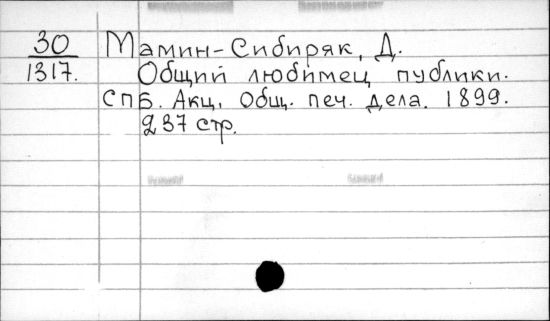 30 Мамин-Сибиряк, Д.
1317. Общий любимец публики.
СПБ. Акц. Общ. печ. дела. 1899.
237 стр.